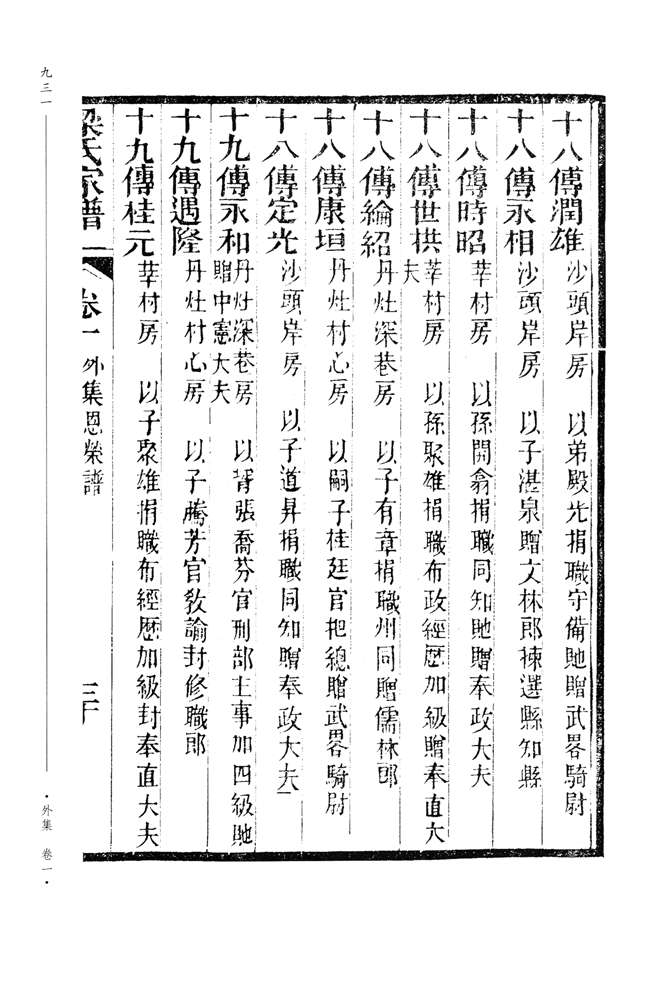 十八傳潤雄 沙頭岸房 以弟殿光捐職守備貤贈武畧騎尉
十八傳永相 沙頭岸房 以子湛泉贈文林郎揀選縣知縣
十八傳時昭 莘村房 以孫開翁捐職同知貤贈奉政大夫
十八傳世拱 莘村房 以孫聚雄捐職布政經歴加級贈奉直大
夫
十八傳綸紹 丹灶深巷房 以子有章捐職州同贈儒林郎
十八傳康垣 丹灶村心房 以嗣子桂廷官把總贈武畧騎尉
十八傳定光 沙頭岸房 以子道昇捐職同知贈奉政大夫
十九傳永和 丹灶深巷房 以胥張喬芬官刑部主事加四級貤
贈中憲大夫
十九傳遇隆 丹灶村心房 以子騰芳官敎諭封修職郎
十九傳桂元 莘村房 以子聚雄捐職布經歴加級封奉直大夫
梁氏家譜 卷一 外集恩榮譜 三十
九三一
·外集 卷一·